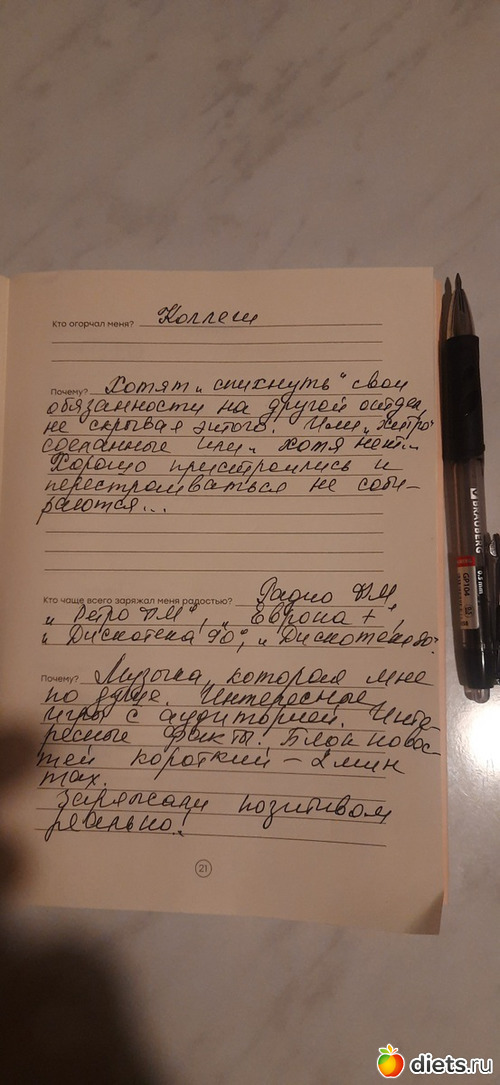 Кто огорчал меня? Коллеги
Почему? Хотят „спихнуть“ свои
обязанности на другой отдел,
не скрывая этого. Или „хитро“
сделанные или
Хорошо пристроились и
перестраиваться не соби-
раются...
Кто чаще всего заряжал меня радостью? Радио FM,
„Ретро FM“, „Европа +“,
„Дискотека 90“, „Дискотека 80“.
Почему? Музыка, которая мне
по душе. Интересные
игры с аудиторией. Инте-
ресные факты. Блок новос-
тей короткий – 2 мин
тах.
Заряжали позитивом
реально!
21
BRAUBERG
GP104
0.5 mm
diets.ru